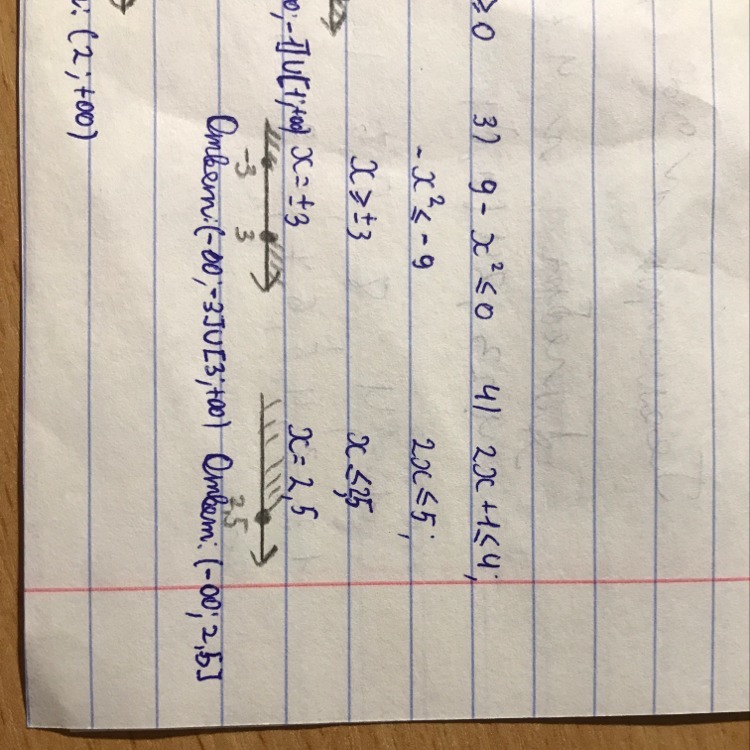 ≥0 3) 9 - x² ≤ 0 4) 2x + 1 ≤ 4;
-x² ≤ -9 2x ≤ 5;
x ≥ ±3 x ≤ 2,5
∞; -1]∪[1; +∞) x = ±3 x = 2,5
-3 3 2,5
Ответ: (-∞; -3]∪[3; +∞) Ответ: (-∞; 2,5]
: (2; +∞)